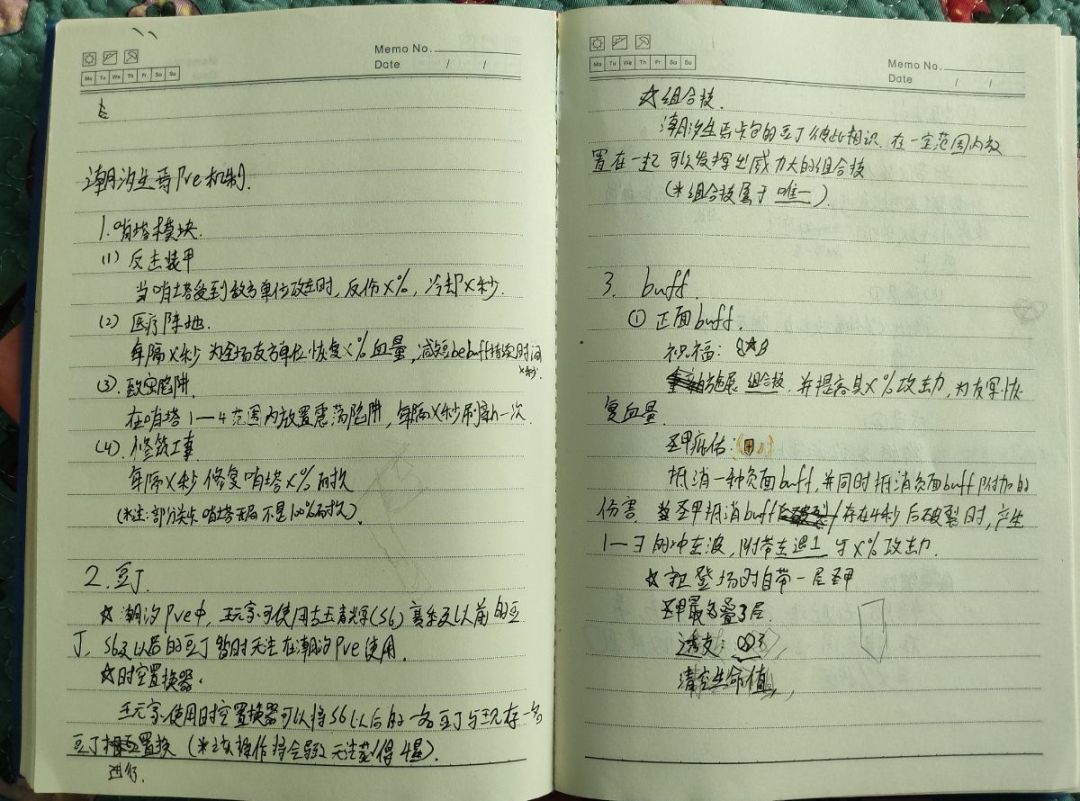 Memo No.
Date / /
Mo Tu We Th Fr Sa Su
潮汐生焉Pve机制.
1.哨塔模块.
(1) 反击装甲
当哨塔受到敌方单位攻击时, 反伤X%, 冷却X秒.
(2) 医疗阵地.
每隔X秒 为全场友方单位恢复X%血量, 减短bebuff持续时间
X秒.
(3). 致密陷阱.
在哨塔1—4范围内放置震荡陷阱, 每隔X秒刷新一次.
(4). 修筑工事.
每隔X秒 修复哨塔X%耐久
(*注: 部分关卡 哨塔开局 不是100%耐久).
2.豆丁.
☆ 潮汐Pve中, 玩家可使用 (S6) 赛季及以前的豆
丁, S6及以后的豆丁暂时无法在潮汐Pve使用.
☆时空置换器.
玩家使用时空置换器可以将S6以后的一名豆丁与现存一名
豆丁相互置换 (*该操作将会导致无法获得4星).
进行.
Memo No.
Date / /
Mo Tu We Th Fr Sa Su
☆组合技.
潮汐生焉卡包的豆丁彼此相识, 在一定范围内放
置在一起 可以发挥出威力大的组合技
(*组合技属于 唯一).
3. buff.
① 正面buff.
祝福:
施展 组合技, 并提高其X%攻击力, 为友军恢
复血量.
圣甲庇佑:
抵消一种负面buff, 并同时抵消负面buff附加的
伤害. 当圣甲抵消buff 存在4秒后破裂时, 产生
1—3的冲击波, 附带击退1 与X%攻击力.
☆ 登场时自带一层圣甲
圣甲最多叠3层.
透支:
清空生命值,